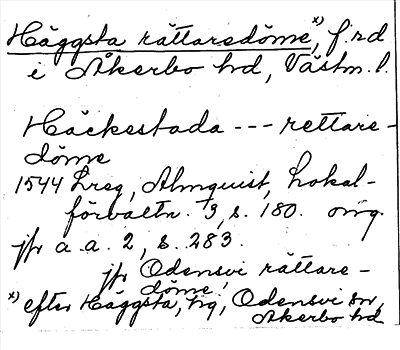 Häggsta rättaredöme x), f.n.d
i Åkerbo hd, Västm. l.
Häckestada --- rettare-
döme
1544 Lreg, Almquist, Lokal-
förvaltn. 3, s. 180. orig.
jfr a.a. 2, s. 283.
jfr Odensvi rättare-
döme!
x) efter Häggsta, by, Odensvi sn,
Åkerbo hd